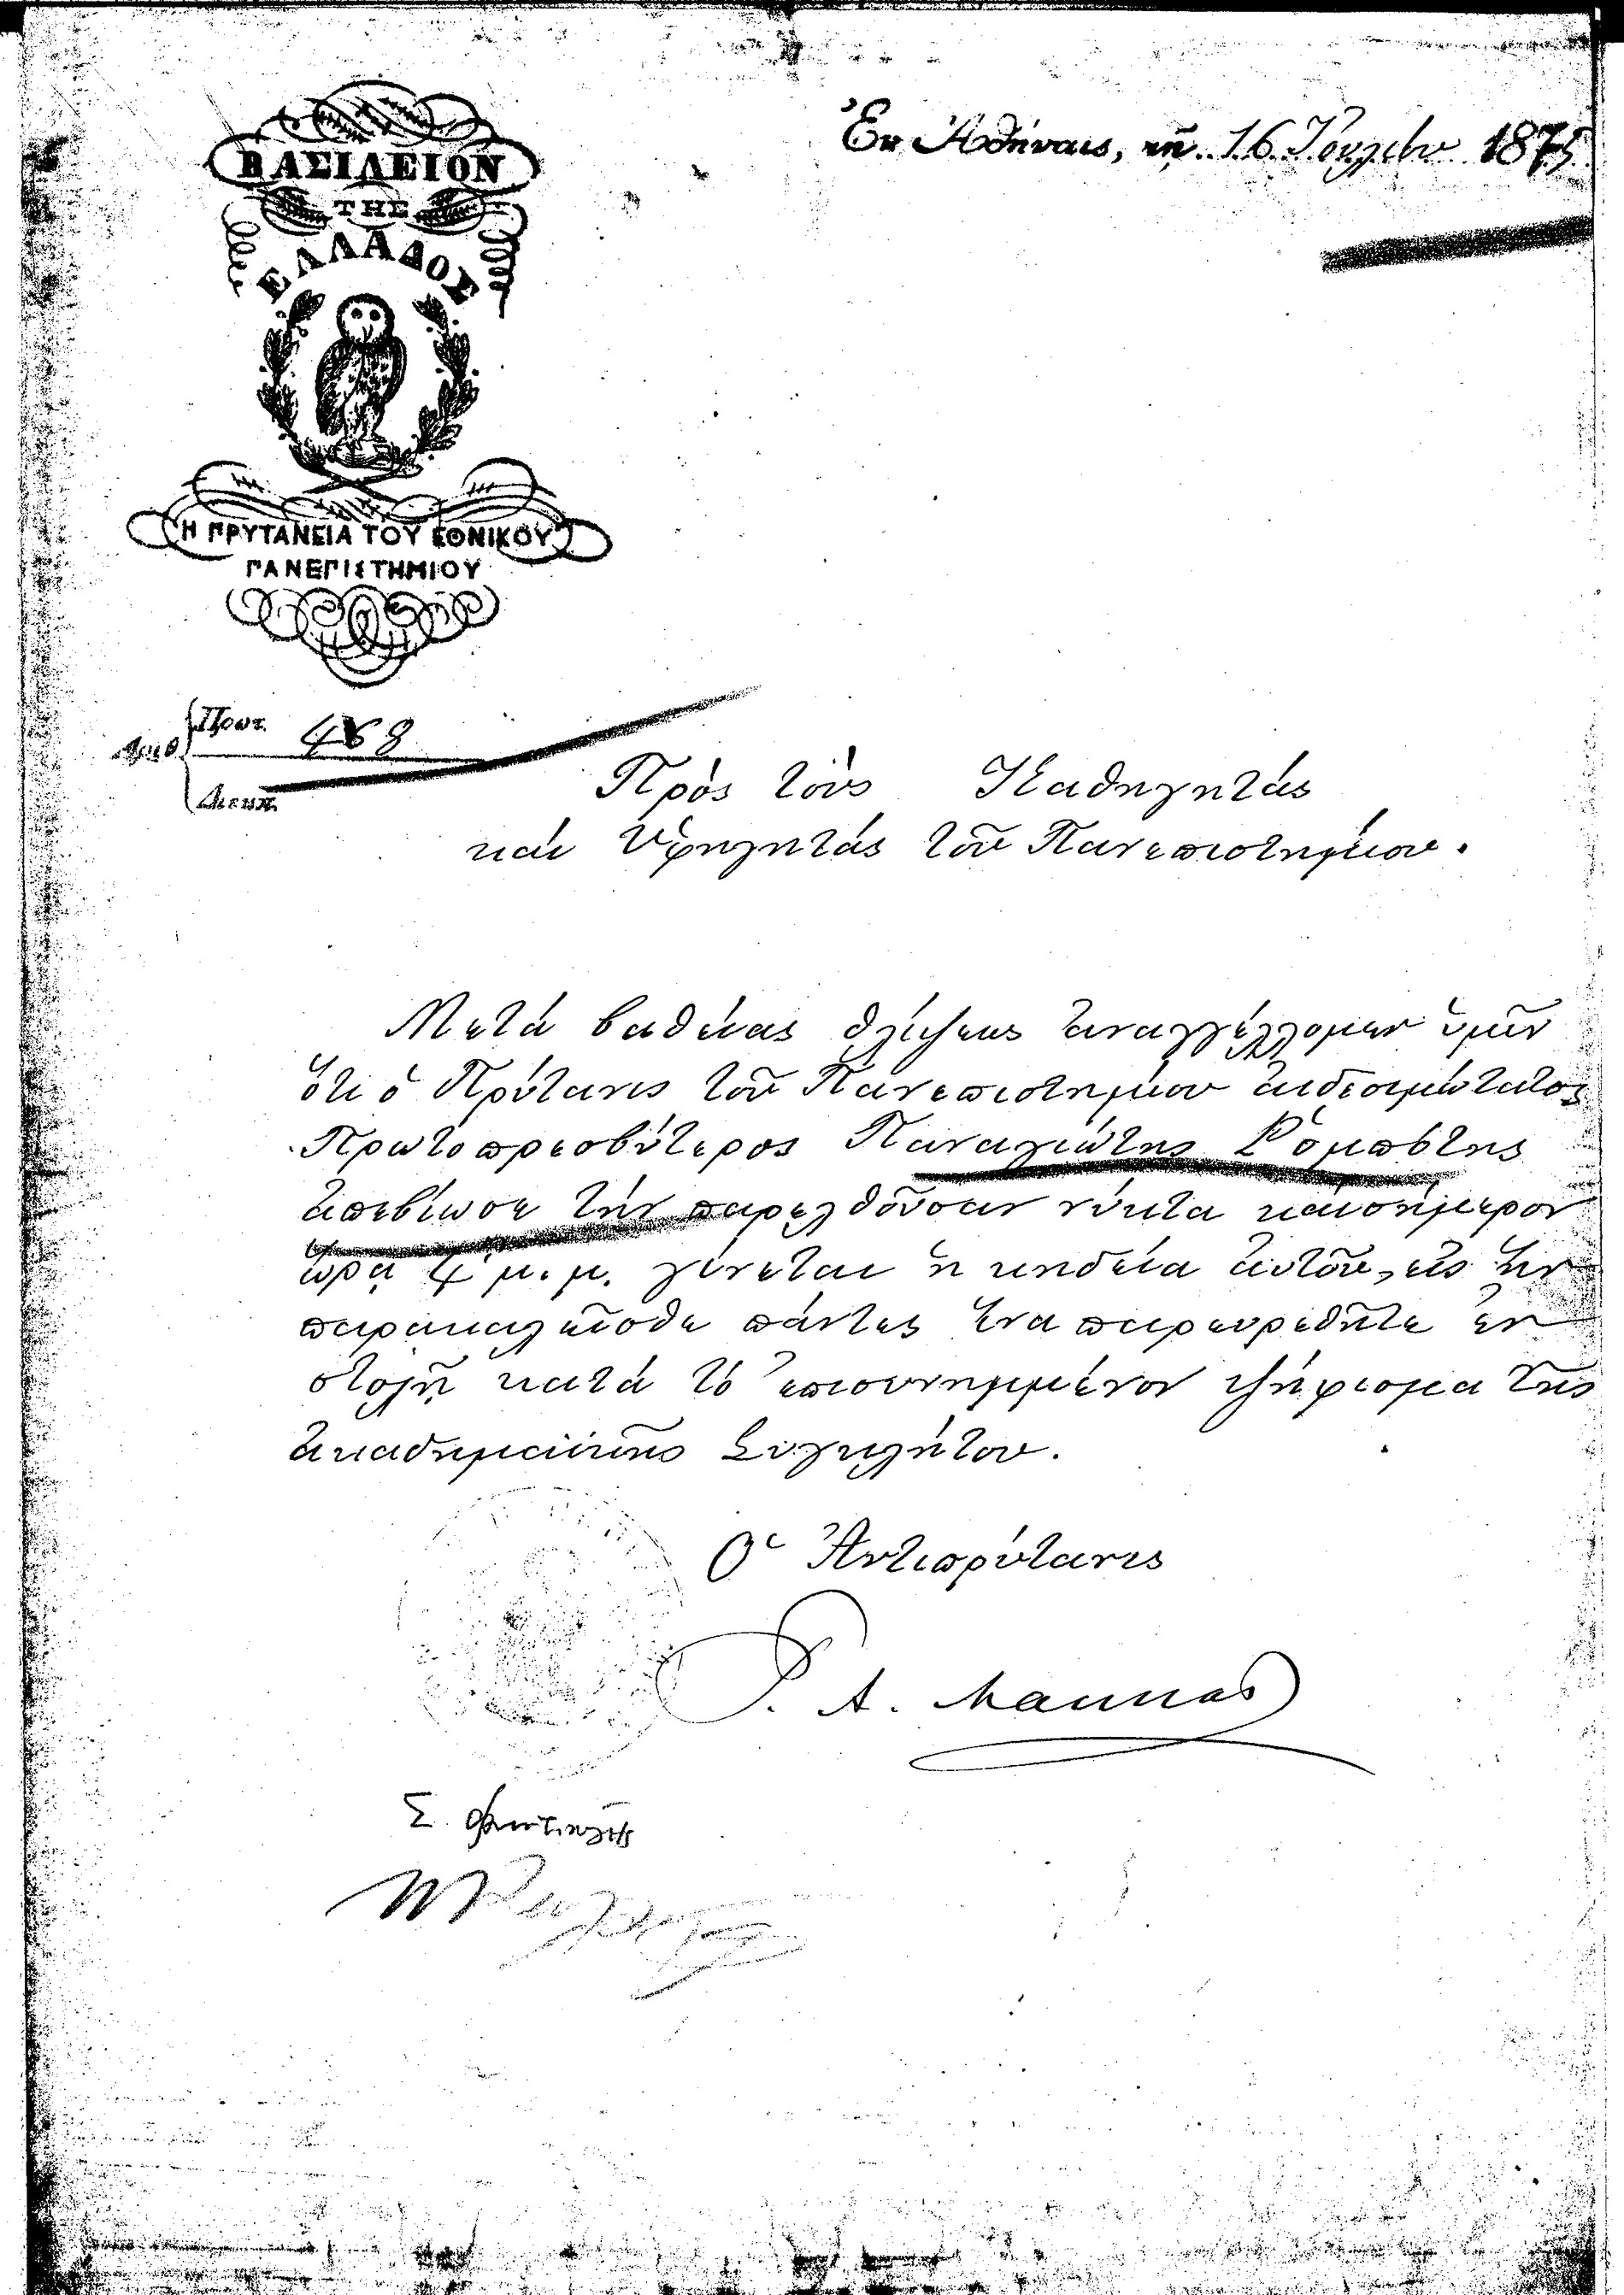 ΒΑΣΙΛΕΙΟΝ
ΤΗΣ
ΕΛΛΑΔΟΣ
Η ΠΡΥΤΑΝΕΙΑ ΤΟΥ ΕΘΝΙΚΟΥ
ΠΑΝΕΠΙΣΤΗΜΙΟΥ
Ἐν Ἀθήναις, τῇ 16 Ἰουλίου 1875
Ἀριθ.
Πρωτ. 468
Διεκπ.
Πρὸς τοὺς Καθηγητάς
καὶ Ὑφηγητάς τοῦ Πανεπιστημίου.
Μετὰ βαθείας θλίψεως ἀναγγέλλομεν ὑμῖν
ὅτι ὁ Πρύτανις τοῦ Πανεπιστημίου αἰδεσιμώτατος
Πρωτοπρεσβύτερος Παναγιώτης Ῥομπότης
ἀπεβίωσε τὴν παρελθοῦσαν νύκτα καὶ σήμερον
ὥρᾳ 4 μ.μ. γίνεται ἡ κηδεία αὐτοῦ, εἰς ἣν
παρακαλεῖσθε πάντες ἵνα παρευρεθῆτε ἐν
στολῇ κατὰ τὸ ἐπισυνημμένον ψήφισμα τῆς
ἀκαδημαϊκῆς Συγκλήτου.
Ὁ Ἀντιπρύτανις
Α.
Σ.